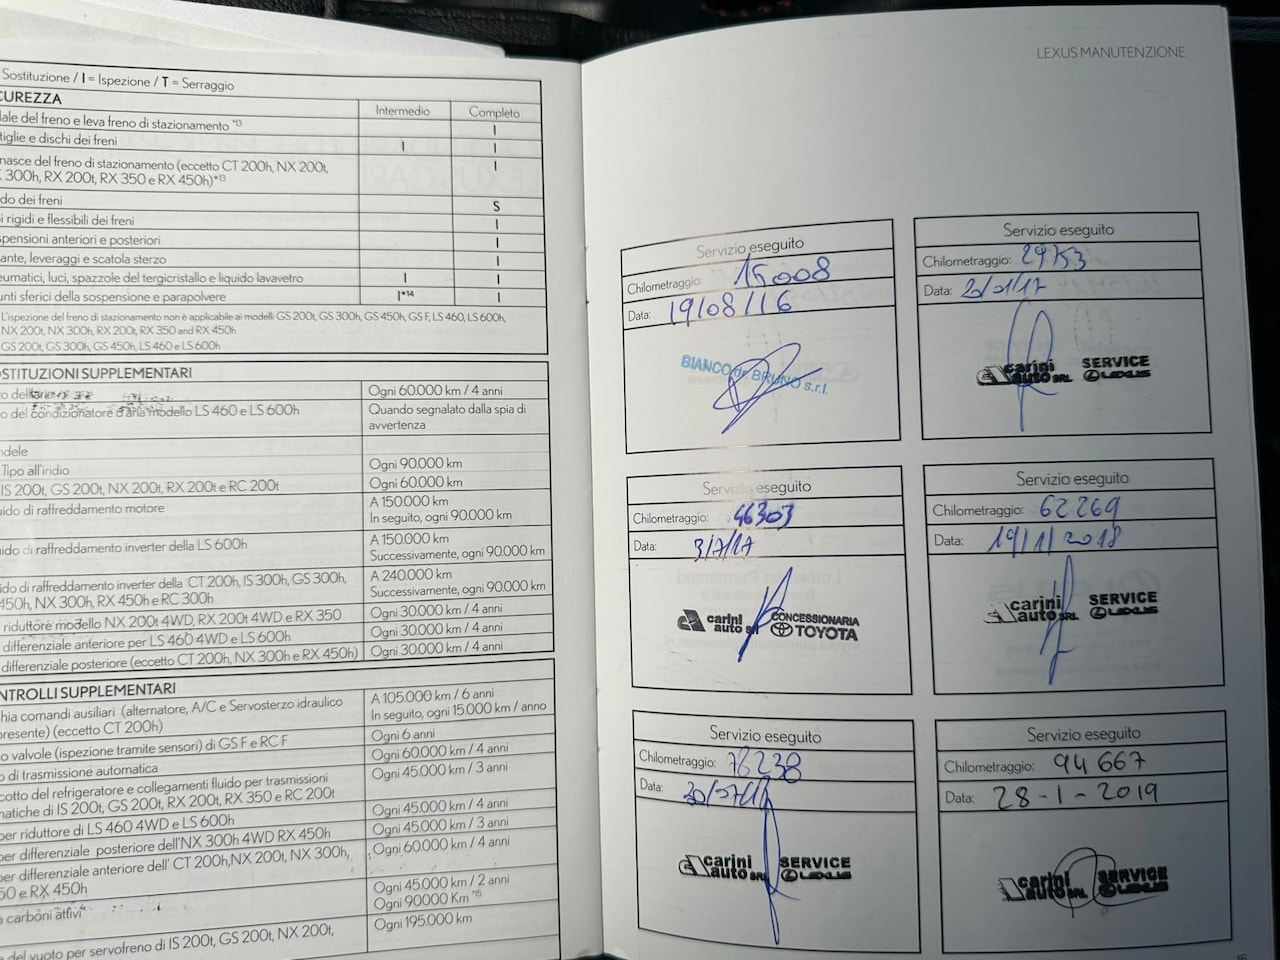 Sostituzione / I = Ispezione / T = Serraggio
CUREZZA
Intermedio Completo
dale del freno e leva freno di stazionamento *13 I
tiglie e dischi dei freni I I
nasce del freno di stazionamento (eccetto CT 200h, NX 200t, I
300h, RX 200t, RX 350 e RX 450h)*13
do dei freni S
i rigidi e flessibili dei freni I
spensioni anteriori e posteriori I
ante, leveraggi e scatola sterzo I
eumatici, luci, spazzole del tergicristallo e liquido lavavetro I I
unti sferici della sospensione e parapolvere I*14 I
L'ispezione del freno di stazionamento non è applicabile ai modelli GS 200t, GS 300h, GS 450h, GS F, LS 460, LS 600h,
NX 200t, NX 300h, RX 200t, RX 350 and RX 450h
GS 200t, GS 300h, GS 450h, LS 460 e LS 600h
OSTITUZIONI SUPPLEMENTARI
Ogni 60.000 km / 4 anni
o del condizionatore d'aria modello LS 460 e LS 600h Quando segnalato dalla spia di
avvertenza
ndele
Tipo all'iridio Ogni 90.000 km
IS 200t, GS 200t, NX 200t, RX 200t e RC 200t Ogni 60.000 km
uido di raffreddamento motore A 150.000 km
In seguito, ogni 90.000 km
uido di raffreddamento inverter della LS 600h A 150.000 km
Successivamente, ogni 90.000 km
uido di raffreddamento inverter della CT 200h, IS 300h, GS 300h, A 240.000 km
450h, NX 300h, RX 450h e RC 300h Successivamente, ogni 90.000 km
riduttore modello NX 200t 4WD, RX 200t 4WD e RX 350 Ogni 30.000 km / 4 anni
differenziale anteriore per LS 460 4WD e LS 600h Ogni 30.000 km / 4 anni
differenziale posteriore (eccetto CT 200h, NX 300h e RX 450h) Ogni 30.000 km / 4 anni
NTROLLI SUPPLEMENTARI
hia comandi ausiliari (alternatore, A/C e Servosterzo idraulico A 105.000 km / 6 anni
presente) (eccetto CT 200h) In seguito, ogni 15.000 km / anno
o valvole (ispezione tramite sensori) di GS F e RC F Ogni 6 anni
o di trasmissione automatica Ogni 60.000 km / 4 anni
cotto del refrigeratore e collegamenti fluido per trasmissioni Ogni 45.000 km / 3 anni
matiche di IS 200t, GS 200t, RX 200t, RX 350 e RC 200t
per riduttore di LS 460 4WD e LS 600h Ogni 45.000 km / 4 anni
per differenziale posteriore dell'NX 300h 4WD RX 450h Ogni 45.000 km / 3 anni
per differenziale anteriore dell' CT 200h, NX 200t, NX 300h, Ogni 60.000 km / 4 anni
50 e RX 450h
a carboni attivi Ogni 45.000 km / 2 anni
Ogni 90000 Km *15
del vuoto per servofreno di IS 200t, GS 200t, NX 200t, Ogni 195.000 km
LEXUS MANUTENZIONE
Servizio eseguito
Chilometraggio: 15008
Data: 19/08/16
BIANCO de BRUNO s.r.l.
Servizio eseguito
Chilometraggio:
Data:
carini SERVICE
auto SRL LEXUS
Servizio eseguito
Chilometraggio: 46303
Data: 3/7/17
carini CONCESSIONARIA
auto srl TOYOTA
Servizio eseguito
Chilometraggio: 62269
Data: 19/1/2018
carini SERVICE
auto SRL LEXUS
Servizio eseguito
Chilometraggio: 78238
Data:
carini SERVICE
auto SRL LEXUS
Servizio eseguito
Chilometraggio: 94 667
Data: 28-1-2019
carini SERVICE
auto SRL LEXUS